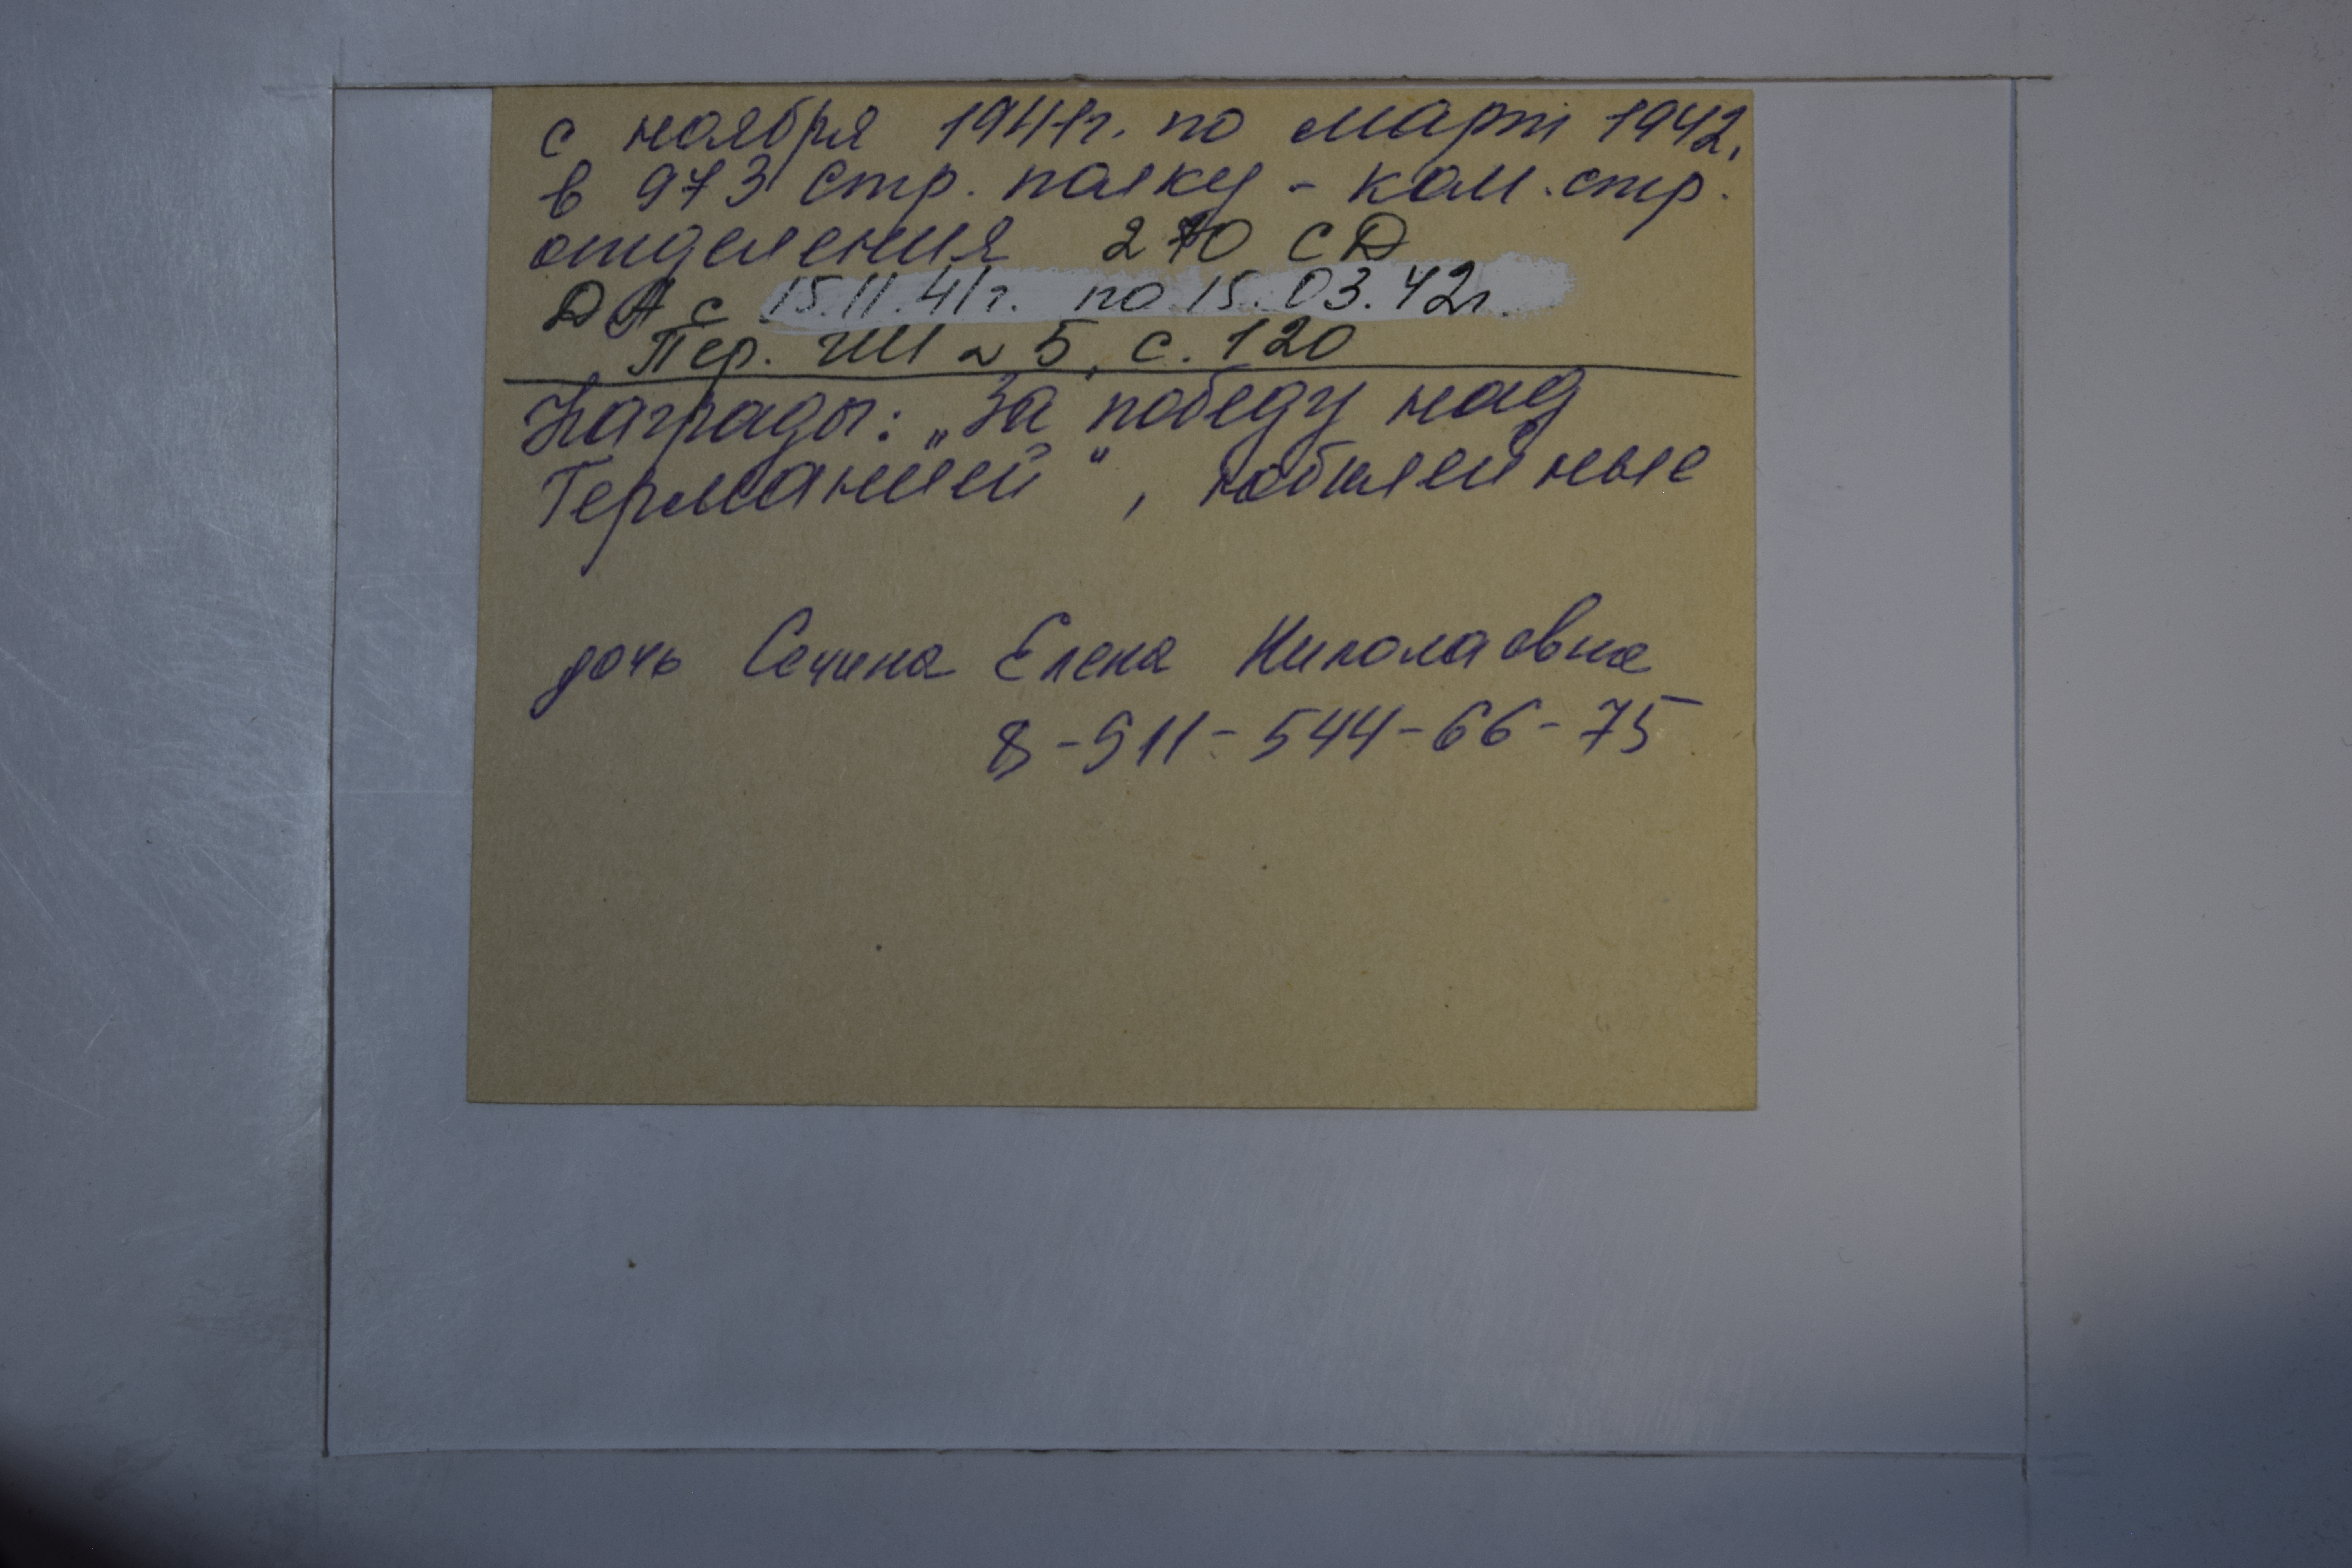 с ноября 1941г. по март 1942.
в 973 стр. полку - ком. стр.
отделения 270 СД
ДА с 15.11.41г. по 15.03.42г.
Пер. ГШ № 5, с. 120
Награды: „За победу над
Германией", юбилейные
дочь Сечина Елена Николаевна
8-911-544-66-75